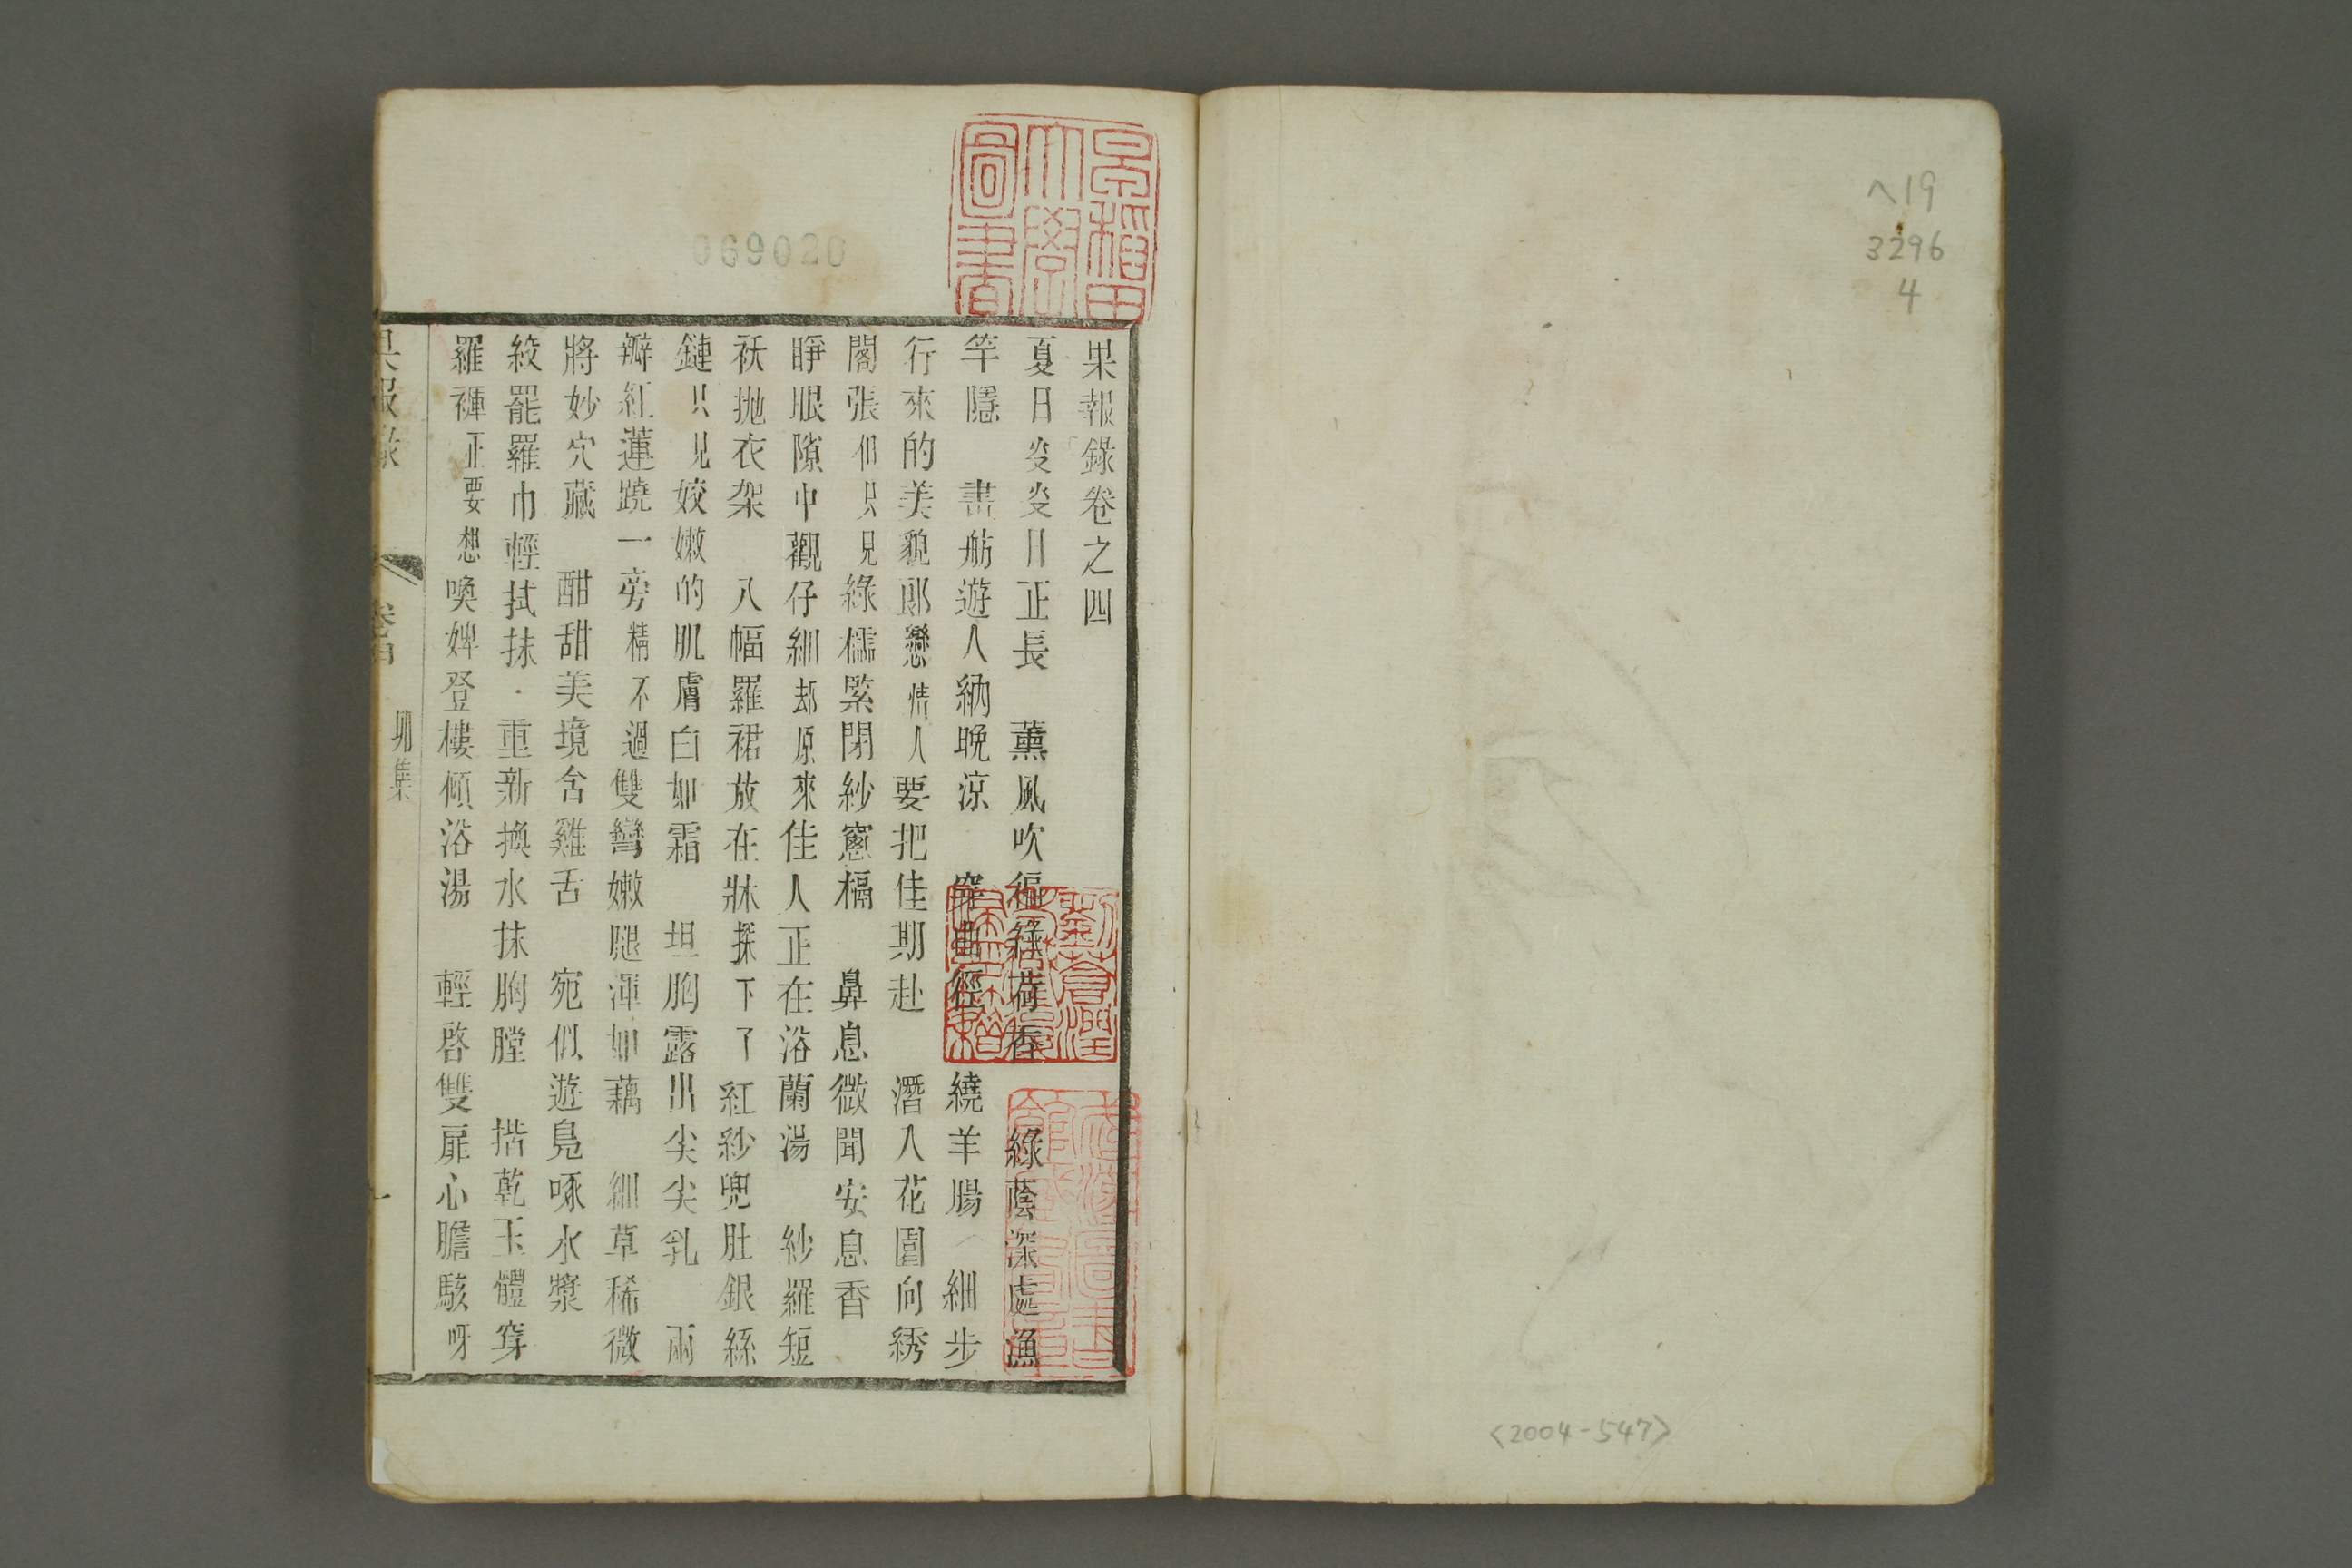 ヘ19
3296
4
<2004-547>
早稲田
大學
圖書
069020
果報錄卷之四
夏日炎炎日正長　薰風吹徧芰荷香　綠蔭深處漁
竿隱　畫舫遊人納晚涼　穿曲徑　繞羊腸　細步
行來的美貌郎戀情人要把佳期赴　潛入花園向綉
閣張但只見綠櫺緊閉紗窻槅　鼻息微聞安息香
睜眼隙中觀仔細却原來佳人正在浴蘭湯　紗羅短
袄抛衣架　八幅羅裙放在牀探下了紅紗兜肚銀絲
鏈只見姣嫩的肌膚白如霜　坦胸露出尖尖乳　兩
瓣紅蓮蹺一旁精不過雙彎嫩腿渾如藕　細草稀微
將妙穴藏　酣甜美境含雞舌　宛似遊鳧啄水漿
絞罷羅巾輕拭抹．重新換水抹胸膛　揩乾玉體穿
羅褲正要想喚婢登樓傾浴湯　輕啓雙扉心膽駭呀
果報錄　卷四　卯集　一